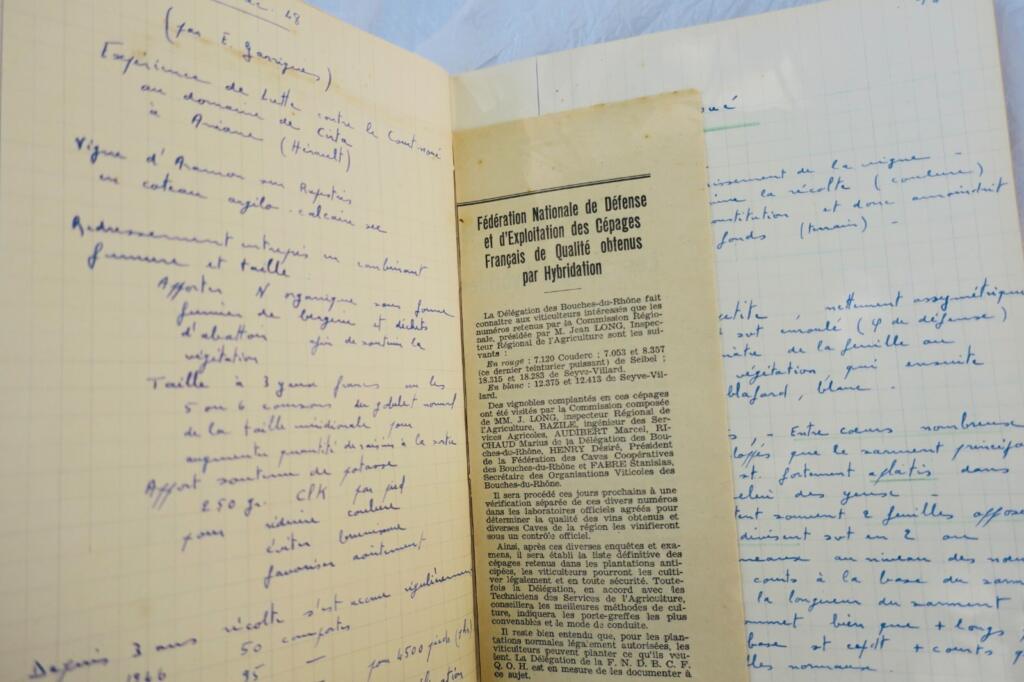 48
(par E. Garrigues)
Expérience de Lutte contre le Court-noué
au domaine de
à Aniane (Hérault)
Vigne d'Aramon sur Rupestris
en coteau argilo-calcaire sec
Redressement entrepris en combinant
fumure et taille
Apporter N organique sous forme
fumier de bergerie et déchets
d'abattoir afin de soutenir la
végétation
Taille à 3 yeux francs sur les
5 ou 6 coursons du gobelet normal
de la taille méridionale pour
augmenter quantité de raisins à la sortie
Apport soutenu de potasse
250 gr. ClK par pied
pour réduire coulure
éviter brunissure
favoriser aoûtement
Depuis 3 ans récolte s'est accrue régulièrement
50 comportes
1946 95 — pour 4500 pieds
Fédération Nationale de Défense
et d'Exploitation des Cépages
Français de Qualité obtenus
par Hybridation
La Délégation des Bouches-du-Rhône fait
connaître aux viticulteurs intéressés que les
numéros retenus par la Commission Régio-
nale, présidée par M. Jean LONG, Inspec-
teur Régional de l'Agriculture sont les sui-
vants :
En rouge : 7.120 Couderc ; 7.053 et 8.357
(ce dernier teinturier puissant) de Seibel ;
18.315 et 18.283 de Seyve-Villard.
En blanc : 12.375 et 12.413 de Seyve-Vil-
lard.
Des vignobles complantés en ces cépages
ont été visités par la Commission composée
de MM. J. LONG, inspecteur Régional de
l'Agriculture, BAZILE, ingénieur des Ser-
vices Agricoles, AUDIBERT Marcel, RI-
CHAUD Marius de la Délégation des Bou-
ches-du-Rhône, HENRY Désiré, Président
de la Fédération des Caves Coopératives
des Bouches-du-Rhône et FABRE Stanislas,
Secrétaire des Organisations Viticoles des
Bouches-du-Rhône.
Il sera procédé ces jours prochains à une
vérification séparée de ces divers numéros
dans les laboratoires officiels agréés pour
déterminer la qualité des vins obtenus et
diverses Caves de la région les vinifieront
sous un contrôle officiel.
Ainsi, après ces diverses enquêtes et exa-
mens, il sera établi la liste définitive des
cépages retenus dans les plantations anti-
cipées, les viticulteurs pourront les culti-
ver légalement et en toute sécurité. Toute-
fois la Délégation, en accord avec les
Techniciens des Services de l'Agriculture,
conseillera les meilleures méthodes de cul-
ture, indiquera les porte-greffes les plus
convenables et le mode de conduite.
Il reste bien entendu que, pour les plan-
tations normales légalement autorisées, les
viticulteurs peuvent planter ce qu'ils veu-
lent. La Délégation de la F. N. D. B. C. F.
Q. O. H. est en mesure de les documenter à
ce sujet.
issement de la vigne -
la récolte (coulure)
onstitution et donc amoindrit
fonds (terrain) -
nettement assymétrique
sot enroulé (φ de défense)
de la feuille au
végétation qui ensuite
blafard, blanc.
- Entre cœurs nombreuse
que le sarment principal
st. fortement aplatis dans
celui des yeux -
souvent 2 feuilles opposé
divisent sot en 2 ou
au niveau des nœu
courts à la base du sarm
la longueur du sarment
bien que + longs
base st + courts q
normaux.